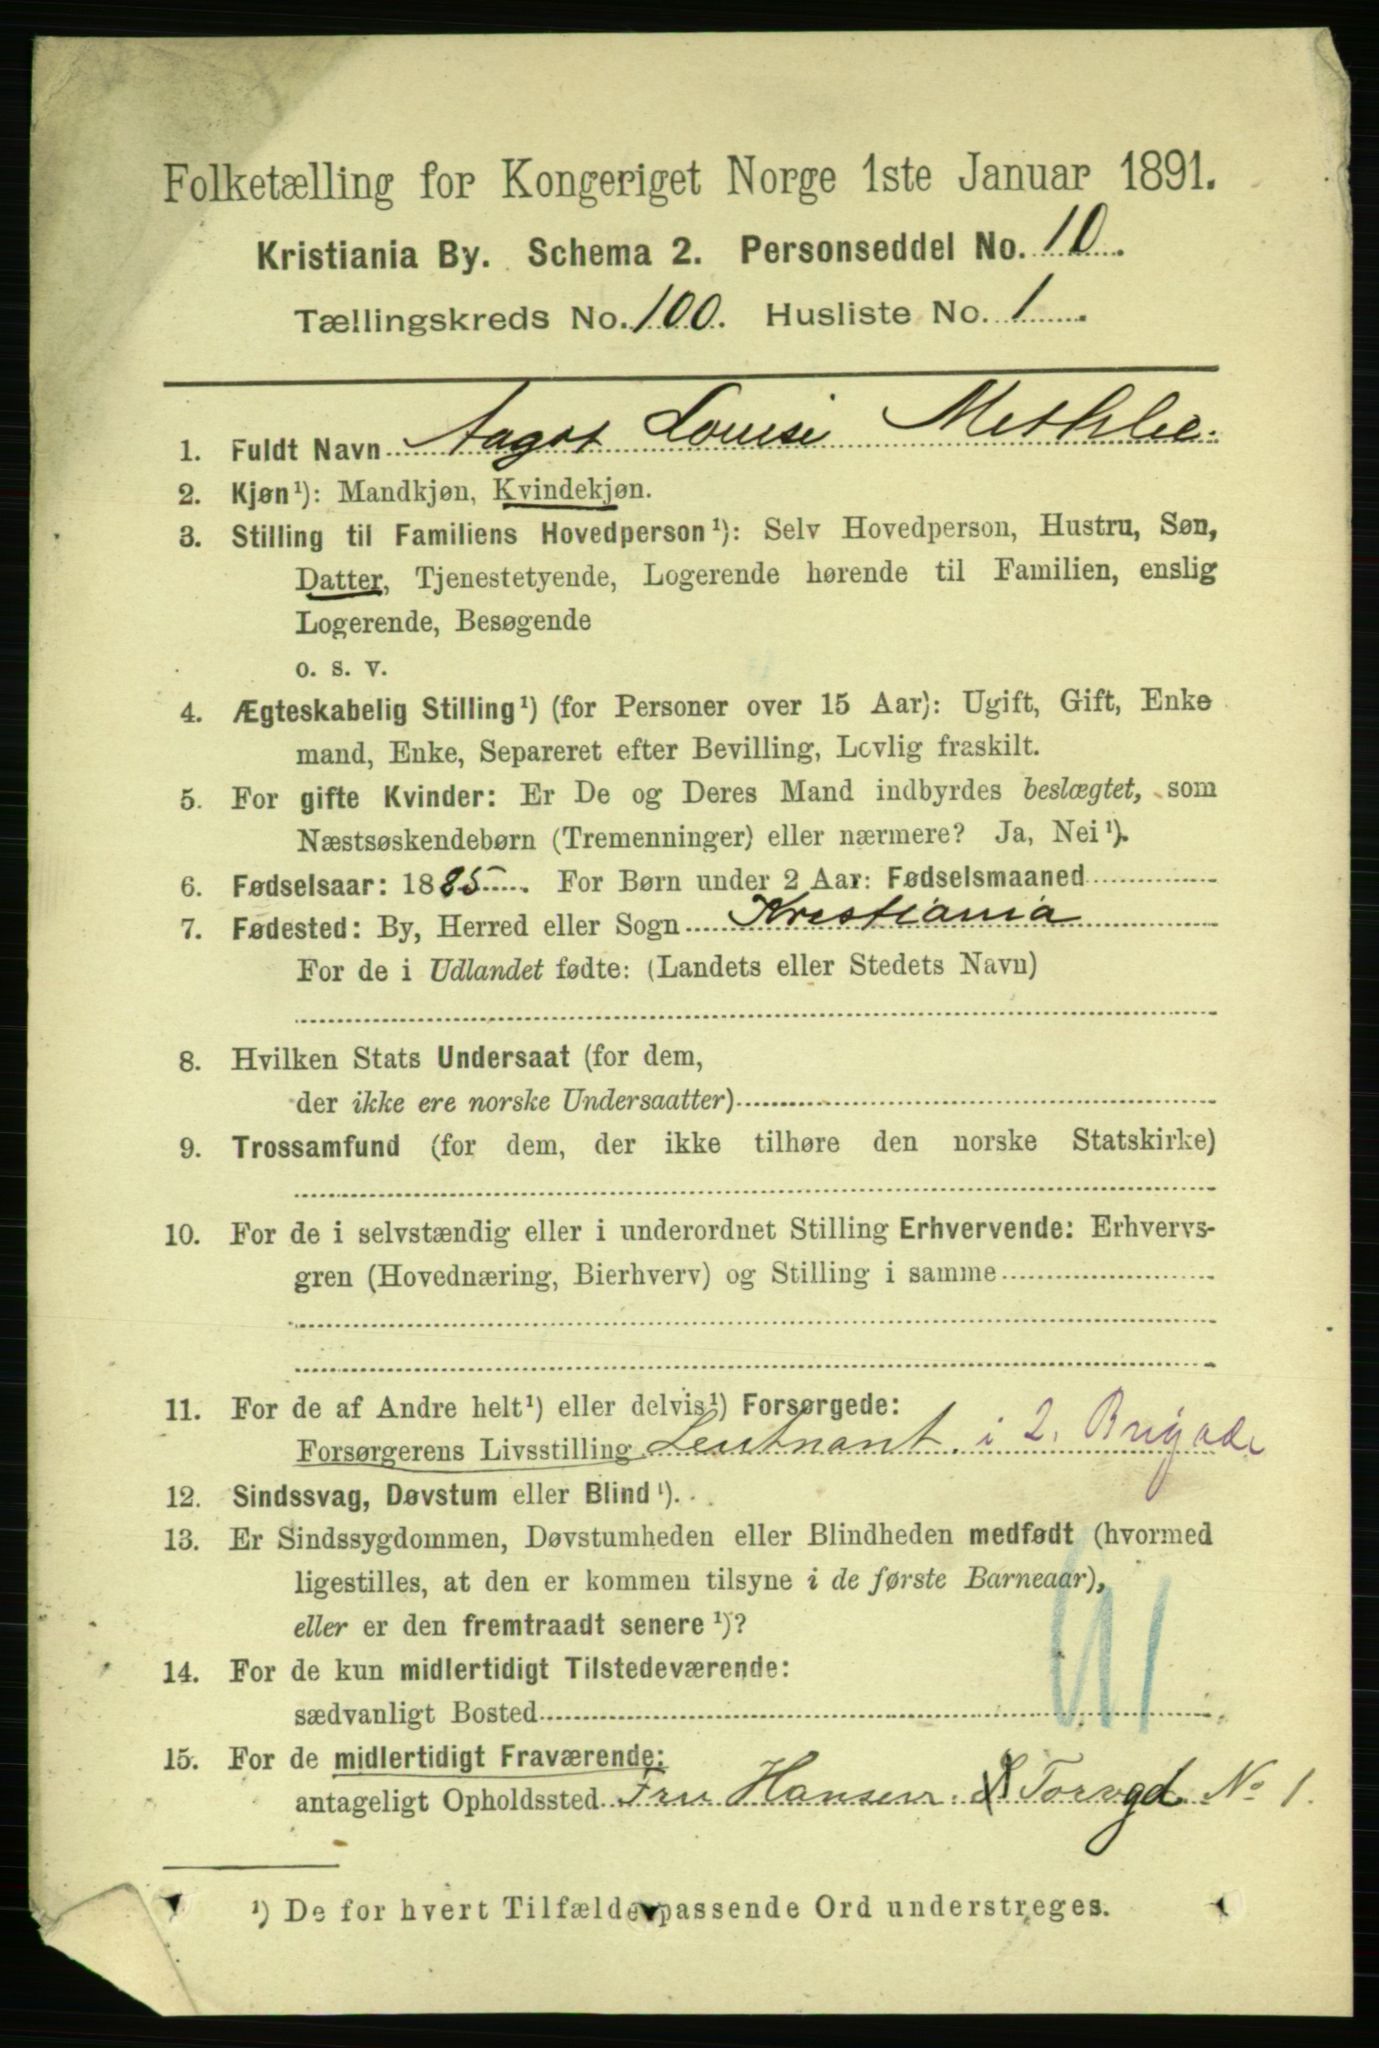 Folketælling for Kongeriget Norge 1ste Januar 1891.
Kristiania By. Schema 2. Personseddel No. 10.
Tællingskreds No. 100. Husliste No. 1.
1. Fuldt Navn Aagot Louise Methlie.
2. Kjøn¹): Mandkjøn, Kvindekjøn.
3. Stilling til Familiens Hovedperson¹): Selv Hovedperson, Hustru, Søn,
Datter, Tjenestetyende, Logerende hørende til Familien, enslig
Logerende, Besøgende
o. s. v.
4. Ægteskabelig Stilling¹) (for Personer over 15 Aar): Ugift, Gift, Enke
mand, Enke, Separeret efter Bevilling, Lovlig fraskilt.
5. For gifte Kvinder: Er De og Deres Mand indbyrdes beslægtet, som
Næstsøskendebørn (Tremenninger) eller nærmere? Ja, Nei¹).
6. Fødselsaar: 1885. For Børn under 2 Aar: Fødselsmaaned
7. Fødested: By, Herred eller Sogn Kristiania
For de i Udlandet fødte: (Landets eller Stedets Navn)
8. Hvilken Stats Undersaat (for dem,
der ikke ere norske Undersaatter)
9. Trossamfund (for dem, der ikke tilhøre den norske Statskirke)
10. For de i selvstændig eller i underordnet Stilling Erhvervende: Erhvervs-
gren (Hovednæring, Bierhverv) og Stilling i samme
11. For de af Andre helt¹) eller delvis¹) Forsørgede:
Forsørgerens Livsstilling Leutnant. i 2. Brigade
12. Sindssvag, Døvstum eller Blind¹).
13. Er Sindssygdommen, Døvstumheden eller Blindheden medfødt (hvormed
ligestilles, at den er kommen tilsyne i de første Barneaar),
eller er den fremtraadt senere¹)?
14. For de kun midlertidigt Tilstedeværende:
sædvanligt Bosted
15. For de midlertidigt Fraværende:
antageligt Opholdssted Fru Hansen. Torvgd No 1.
¹) De for hvert Tilfælde passende Ord understreges.